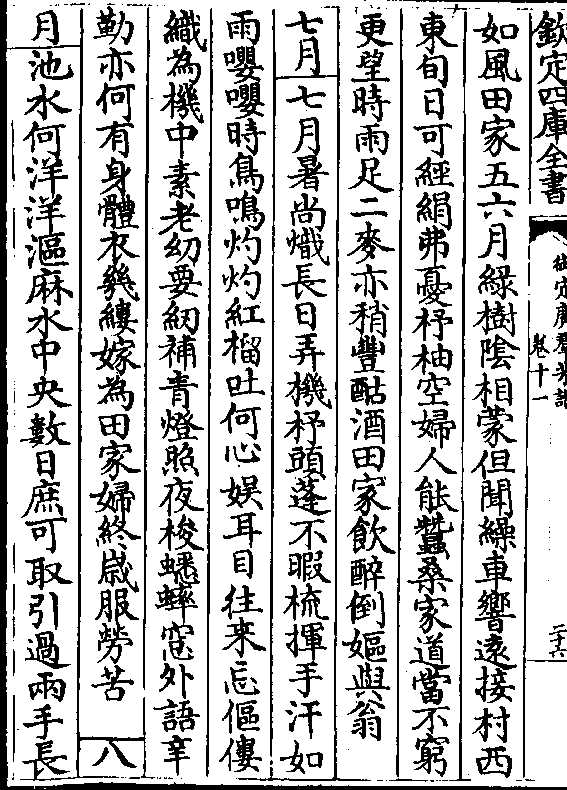 欽定四庫全書
御定廣群芳譜
卷十一
二十六
如風田家五六月綠樹陰相蒙但聞繰車響遠接村西
東旬日可經絹弗憂杼柚空婦人能蠶桑家道當不窮
更望時雨足二麥亦稍豐酤酒田家飲醉倒嫗與翁
七月七月暑尚熾長日弄機杼頭蓬不暇梳揮手汗如
雨嚶嚶時鳥鳴灼灼紅榴吐何心娛耳目往來忘傴僂
織為機中素老幼要紉補青燈照夜梭蟋蟀窓外語辛
勤亦何有身體衣幾縷嫁為田家婦終歲服勞苦　八
月池水何洋洋漚麻水中央數日庶可取引過兩手長